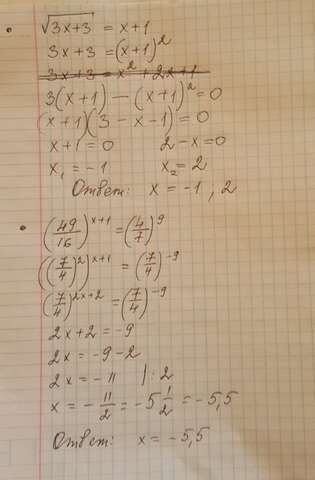 √3x+3 = x+1
3x+3 = (x+1)²
3x+3 = x² + 2x+1
3(x+1) — (x+1)² = 0
(x+1)(3 - x - 1) = 0
x+1 = 0 2-x=0
x₁ = -1 x₂ = 2
Ответ: x = -1, 2
(49/16)^x+1 = (4/7)^9
((7/4)²)^x+1 = (7/4)^-9
(7/4)^2x+2 = (7/4)^-9
2x+2 = -9
2x = -9-2
2x = -11 |:2
x = -11/2 = -5 1/2 = -5,5
Ответ: x = -5,5